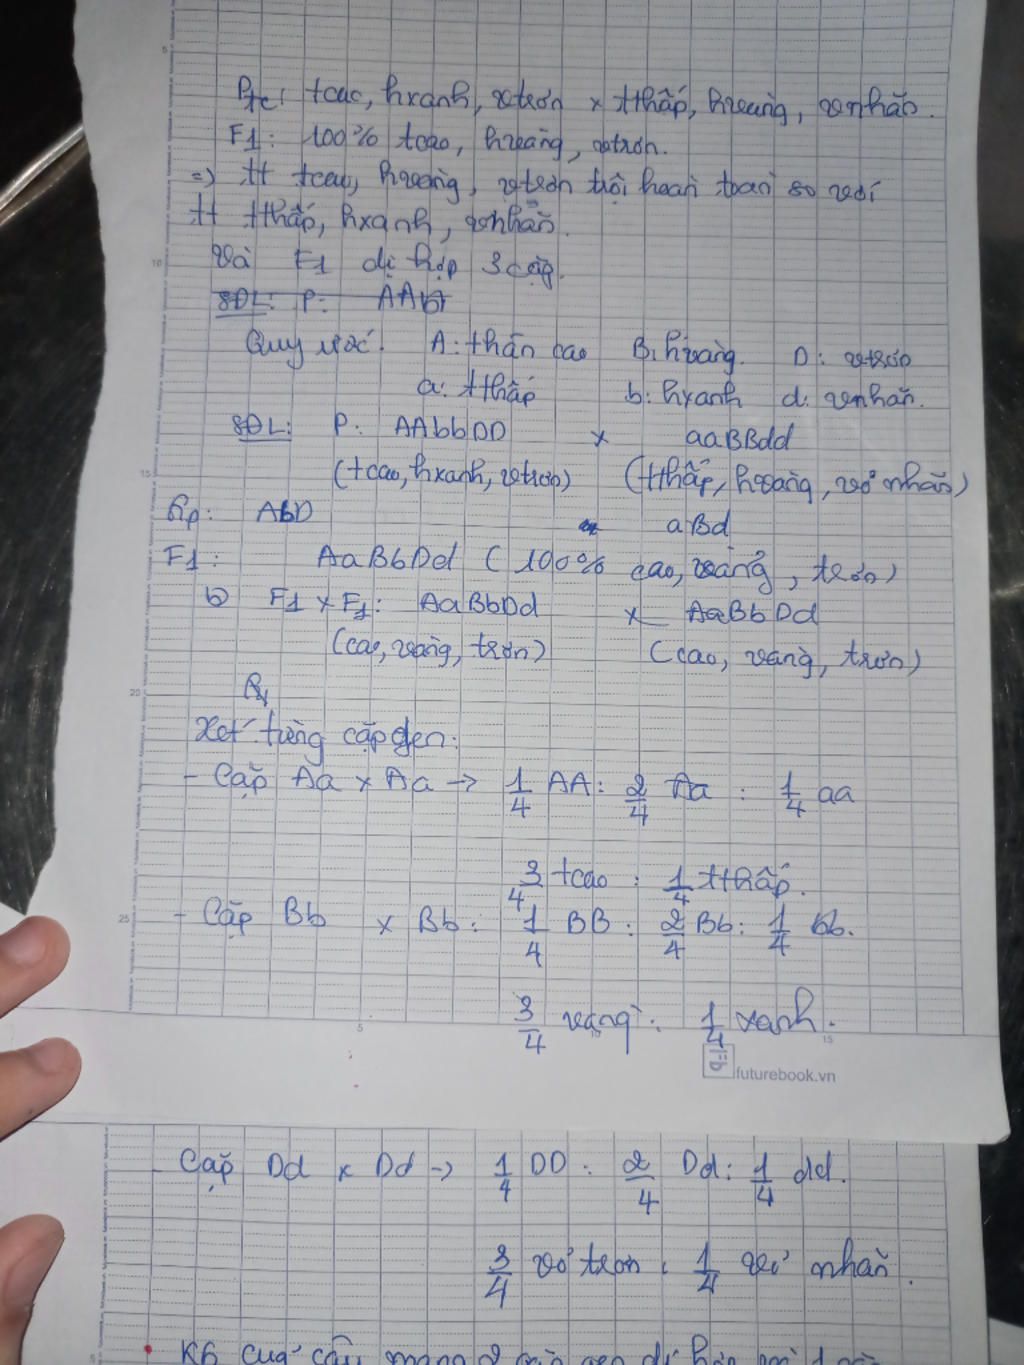 Ptc: tcao, hxanh, vtrơn x tthấp, hvàng, vnhăn.
F1: 100% tcao, hvàng, vtrơn.
=> tt tcao, hvàng, vtrơn trội hoàn toàn so với
tt tthấp, hxanh, vnhăn.
Và F1 dị hợp 3 cặp.
SĐL: P: AAb
Quy ước: A: thân cao B: hvàng. D: vtrơn
a: tthấp b: hxanh d: vnhăn.
SĐL: P: AAbbDD x aaBBdd
(tcao, hxanh, vtrơn) (tthấp, hvàng, vỏ nhăn)
Gp: AbD aBd
F1: AaBbDd (100% cao, vàng, trơn)
b) F1 x F1: AaBbDd x AaBbDd
(cao, vàng, trơn) (cao, vàng, trơn)
Xét từng cặp gen:
- Cặp Aa x Aa -> 1/4 AA : 2/4 Aa : 1/4 aa
3/4 tcao : 1/4 tthấp.
- Cặp Bb x Bb : 1/4 BB : 2/4 Bb : 1/4 bb.
3/4 vàng : 1/4 xanh.
futurebook.vn
- Cặp Dd x Dd -> 1/4 DD : 2/4 Dd : 1/4 dd.
3/4 vỏ trơn : 1/4 vỏ nhăn.
5
10
15
20
25
5
10
15